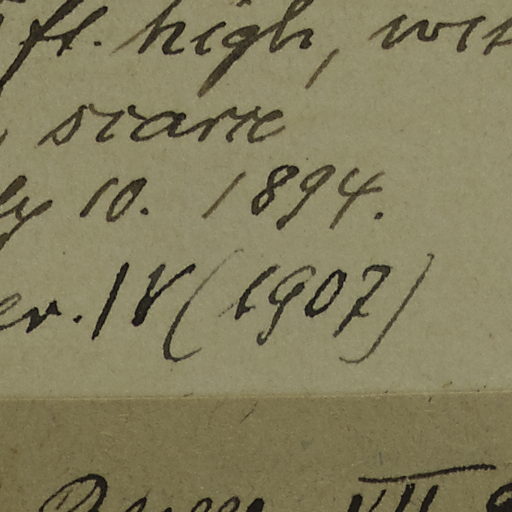 ft. high, wit
scarce
ly 10. 1894.
er. IV (1907)
VII